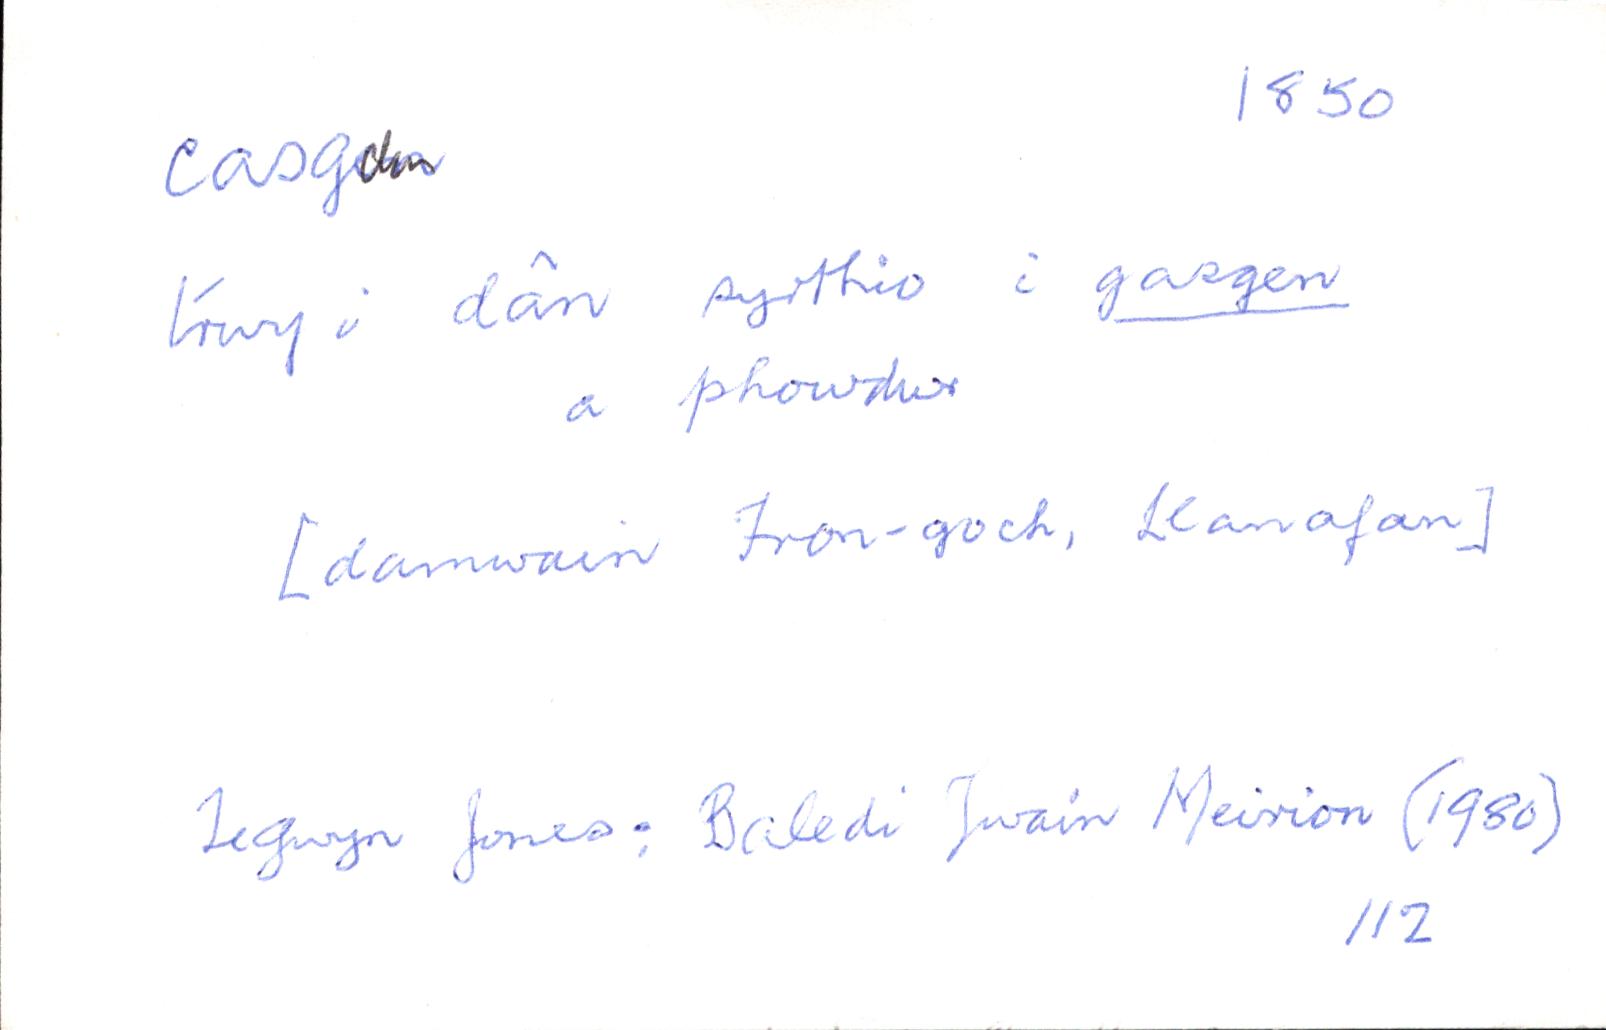 1850
casgen
trwy i dân syrthio i gasgen
a phowdwr
[damwain Fron-goch, Llanafan]
Tegwyn Jones: Baledi Ywain Meirion (1980)
112